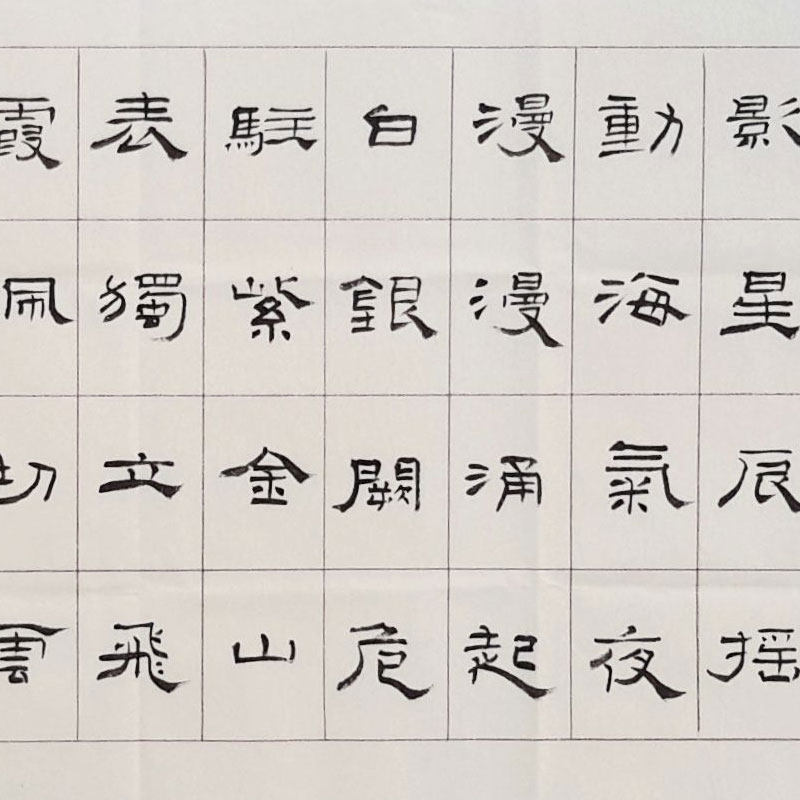 影星辰摇
動海氣夜
漫漫涌起
白銀闕危
駐紫金山
表獨立飛
霞佩切雲